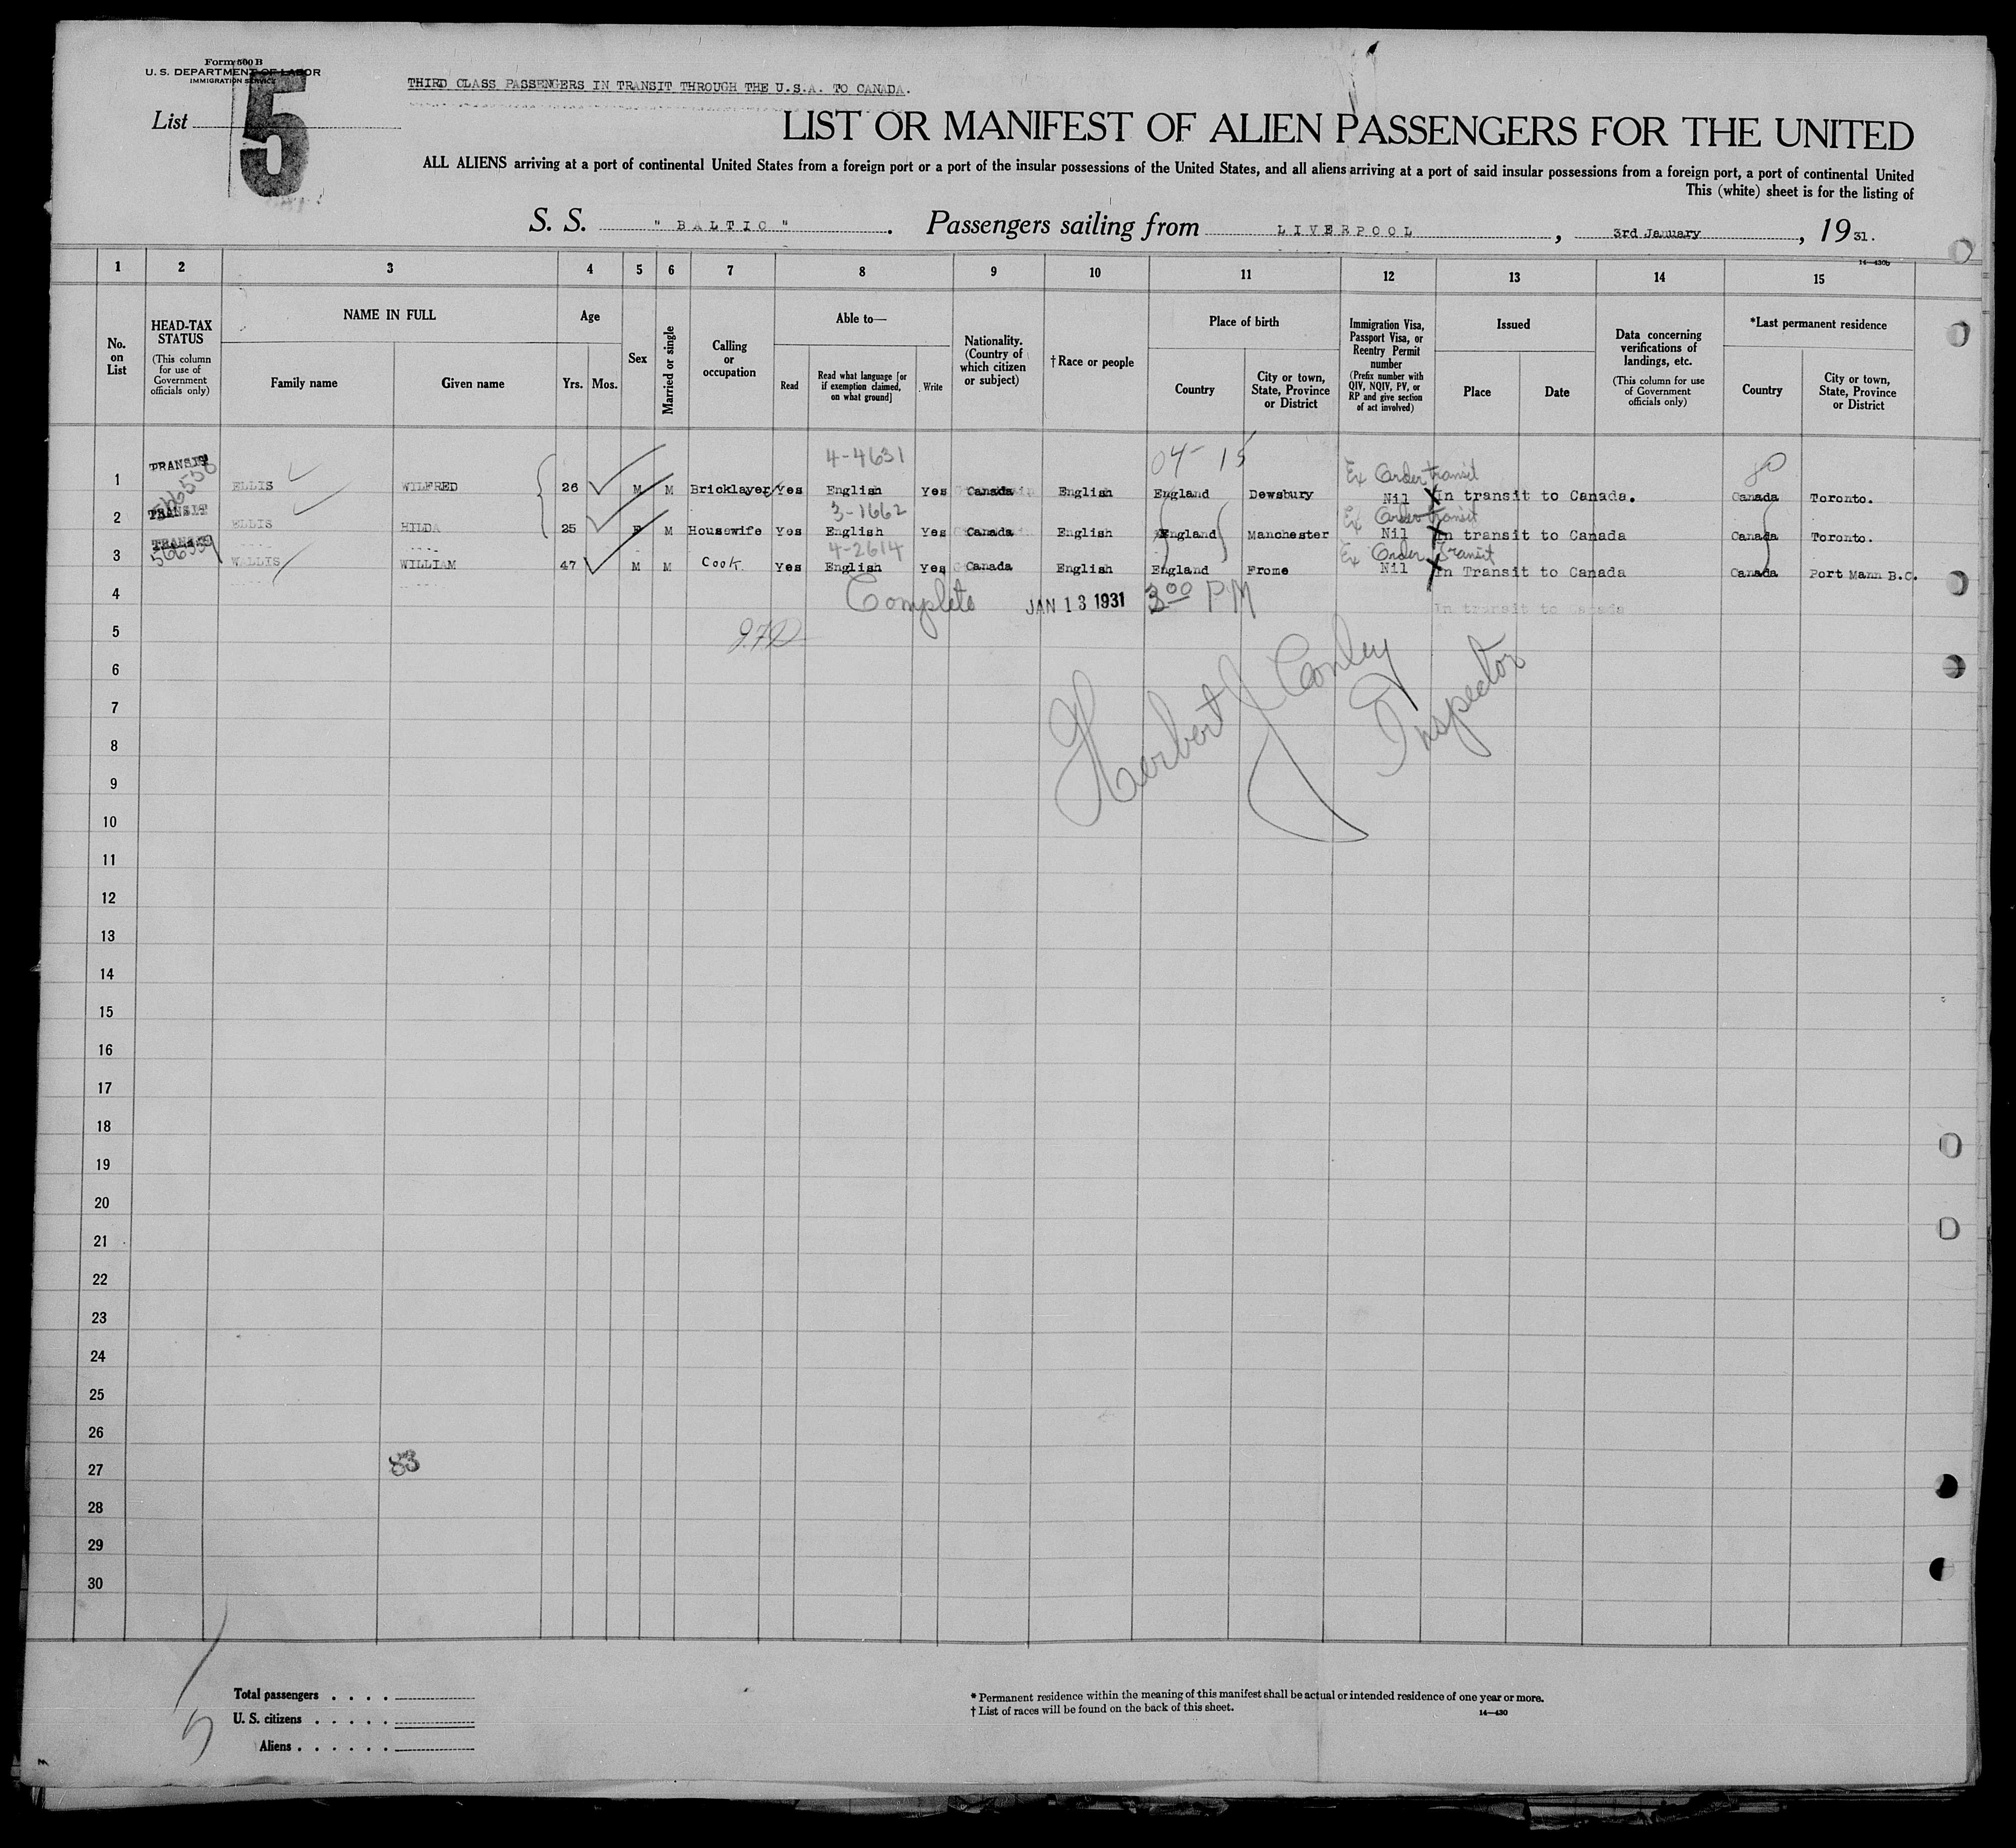 Form 500 B
U. S. DEPARTMENT OF LABOR
IMMIGRATION SERVICE
List 5
THIRD CLASS PASSENGERS IN TRANSIT THROUGH THE U.S.A. TO CANADA.
LIST OR MANIFEST OF ALIEN PASSENGERS FOR THE UNITED
ALL ALIENS arriving at a port of continental United States from a foreign port or a port of the insular possessions of the United States, and all aliens arriving at a port of said insular possessions from a foreign port, a port of continental United
This (white) sheet is for the listing of
S. S. "BALTIC". Passengers sailing from LIVERPOOL, 3rd January, 1931.
14—430b
1 2 3 4 5 6 7 8 9 10 11 12 13 14 15
No. on List
HEAD-TAX STATUS
(This column for use of Government officials only)
NAME IN FULL
Family name
Given name
Age
Yrs. Mos.
Sex
Married or single
Calling or occupation
Able to—
Read
Read what language [or if exemption claimed, on what ground]
Write
Nationality. (Country of which citizen or subject)
†Race or people
Place of birth
Country
City or town, State, Province or District
Immigration Visa, Passport Visa, or Reentry Permit number
(Prefix number with QIV, NQIV, PV, or RP and give section of act involved)
Issued
Place
Date
Data concerning verifications of landings, etc.
(This column for use of Government officials only)
*Last permanent residence
Country
City or town, State, Province or District
4-4631
04- 15
Ex Order transit
80
1 TRANSIT ELLIS WILFRED 26 M M Bricklayer Yes English Yes Canada English England Dewsbury Nil In transit to Canada. Canada Toronto.
3-1662
Ex Order transit
2 TRANSIT ELLIS HILDA 25 F M Housewife Yes English Yes Canada English England Manchester Nil In transit to Canada Canada Toronto.
4-2614
Ex Order Transit
3 TRANSIT WALLIS WILLIAM 47 M M Cook Yes English Yes Canada English England Frome Nil In Transit to Canada Canada Port Mann B.C.
4 Complete JAN 13 1931 3 00 PM In transit to Canada
5
6
7
Herbert J Conley
Inspector
8
9
10
11
12
13
14
15
16
17
18
19
20
21
22
23
24
25
26
27 83
28
29
30
Total passengers . . . .
U. S. citizens . . . . .
Aliens . . . . . .
* Permanent residence within the meaning of this manifest shall be actual or intended residence of one year or more.
† List of races will be found on the back of this sheet.
14—430